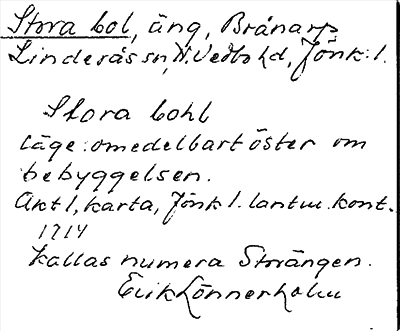 Stora bol, äng, Brånarp,
Linderås sn, N. Vedbo hd, Jönk. l.
Stora bohl
Läge: omedelbart öster om
bebyggelsen.
Akt 1, karta, Jönk l. lantm. kont.
1714
Kallas numera Storängen.
Erik Lönnerholm